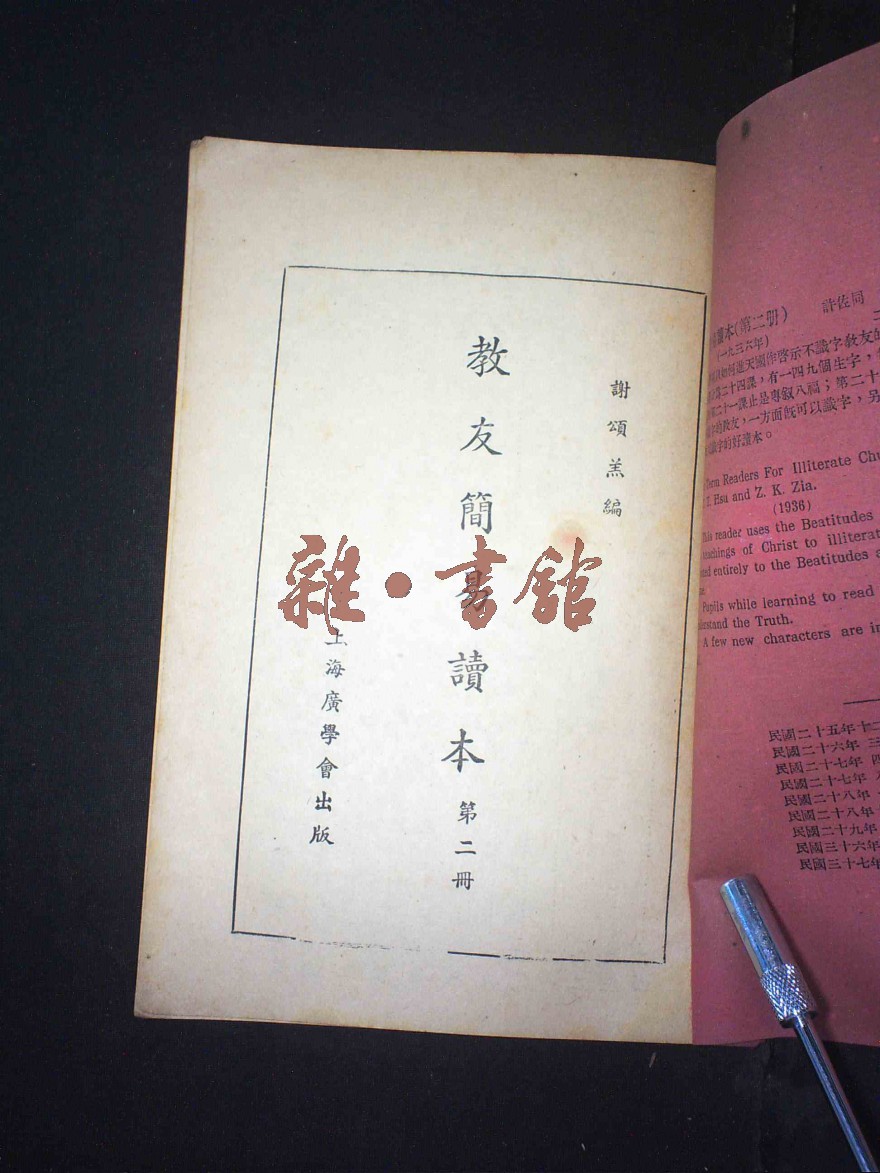 謝頌羔編
教友簡易讀本 第二冊
上海廣學會出版
雜·書館
讀本(第二册) 許佐同
(一九三六年)
如何進天國作啓示不識字教友的
二十四課,有一四九個生字,
二十一課止是專叙八福;第二十
的教友,一方面旣可以識字,另
識字的好讀本。
Readers For Illiterate Chu
Hsu and Z. K. Zia.
(1936)
This reader uses the Beatitudes
teachings of Christ to illiterat
ed entirely to the Beatitudes a
Pupils while learning to read
derstand the Truth.
A few new characters are in
民國二十五年十二
民國二十六年 三
民國二十七年 四
民國二十七年
民國二十八年
民國二十八年
民國二十九年
民國三十六年
民國三十七年